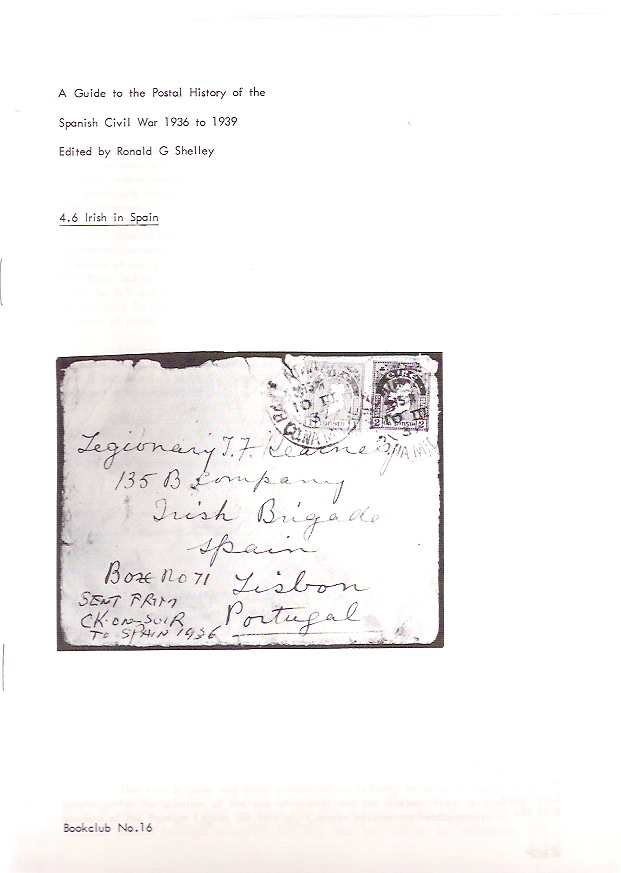 A Guide to the Postal History of the
Spanish Civil War 1936 to 1939
Edited by Ronald G Shelley
4.6 Irish in Spain
Legionary T.F Kearney
135 B Company
Irish Brigade
Spain
Box No 71 Lisbon
SENT FRIM
CK-ON-SUIR Portugal
TO SPAIN 1936
Bookclub No.16